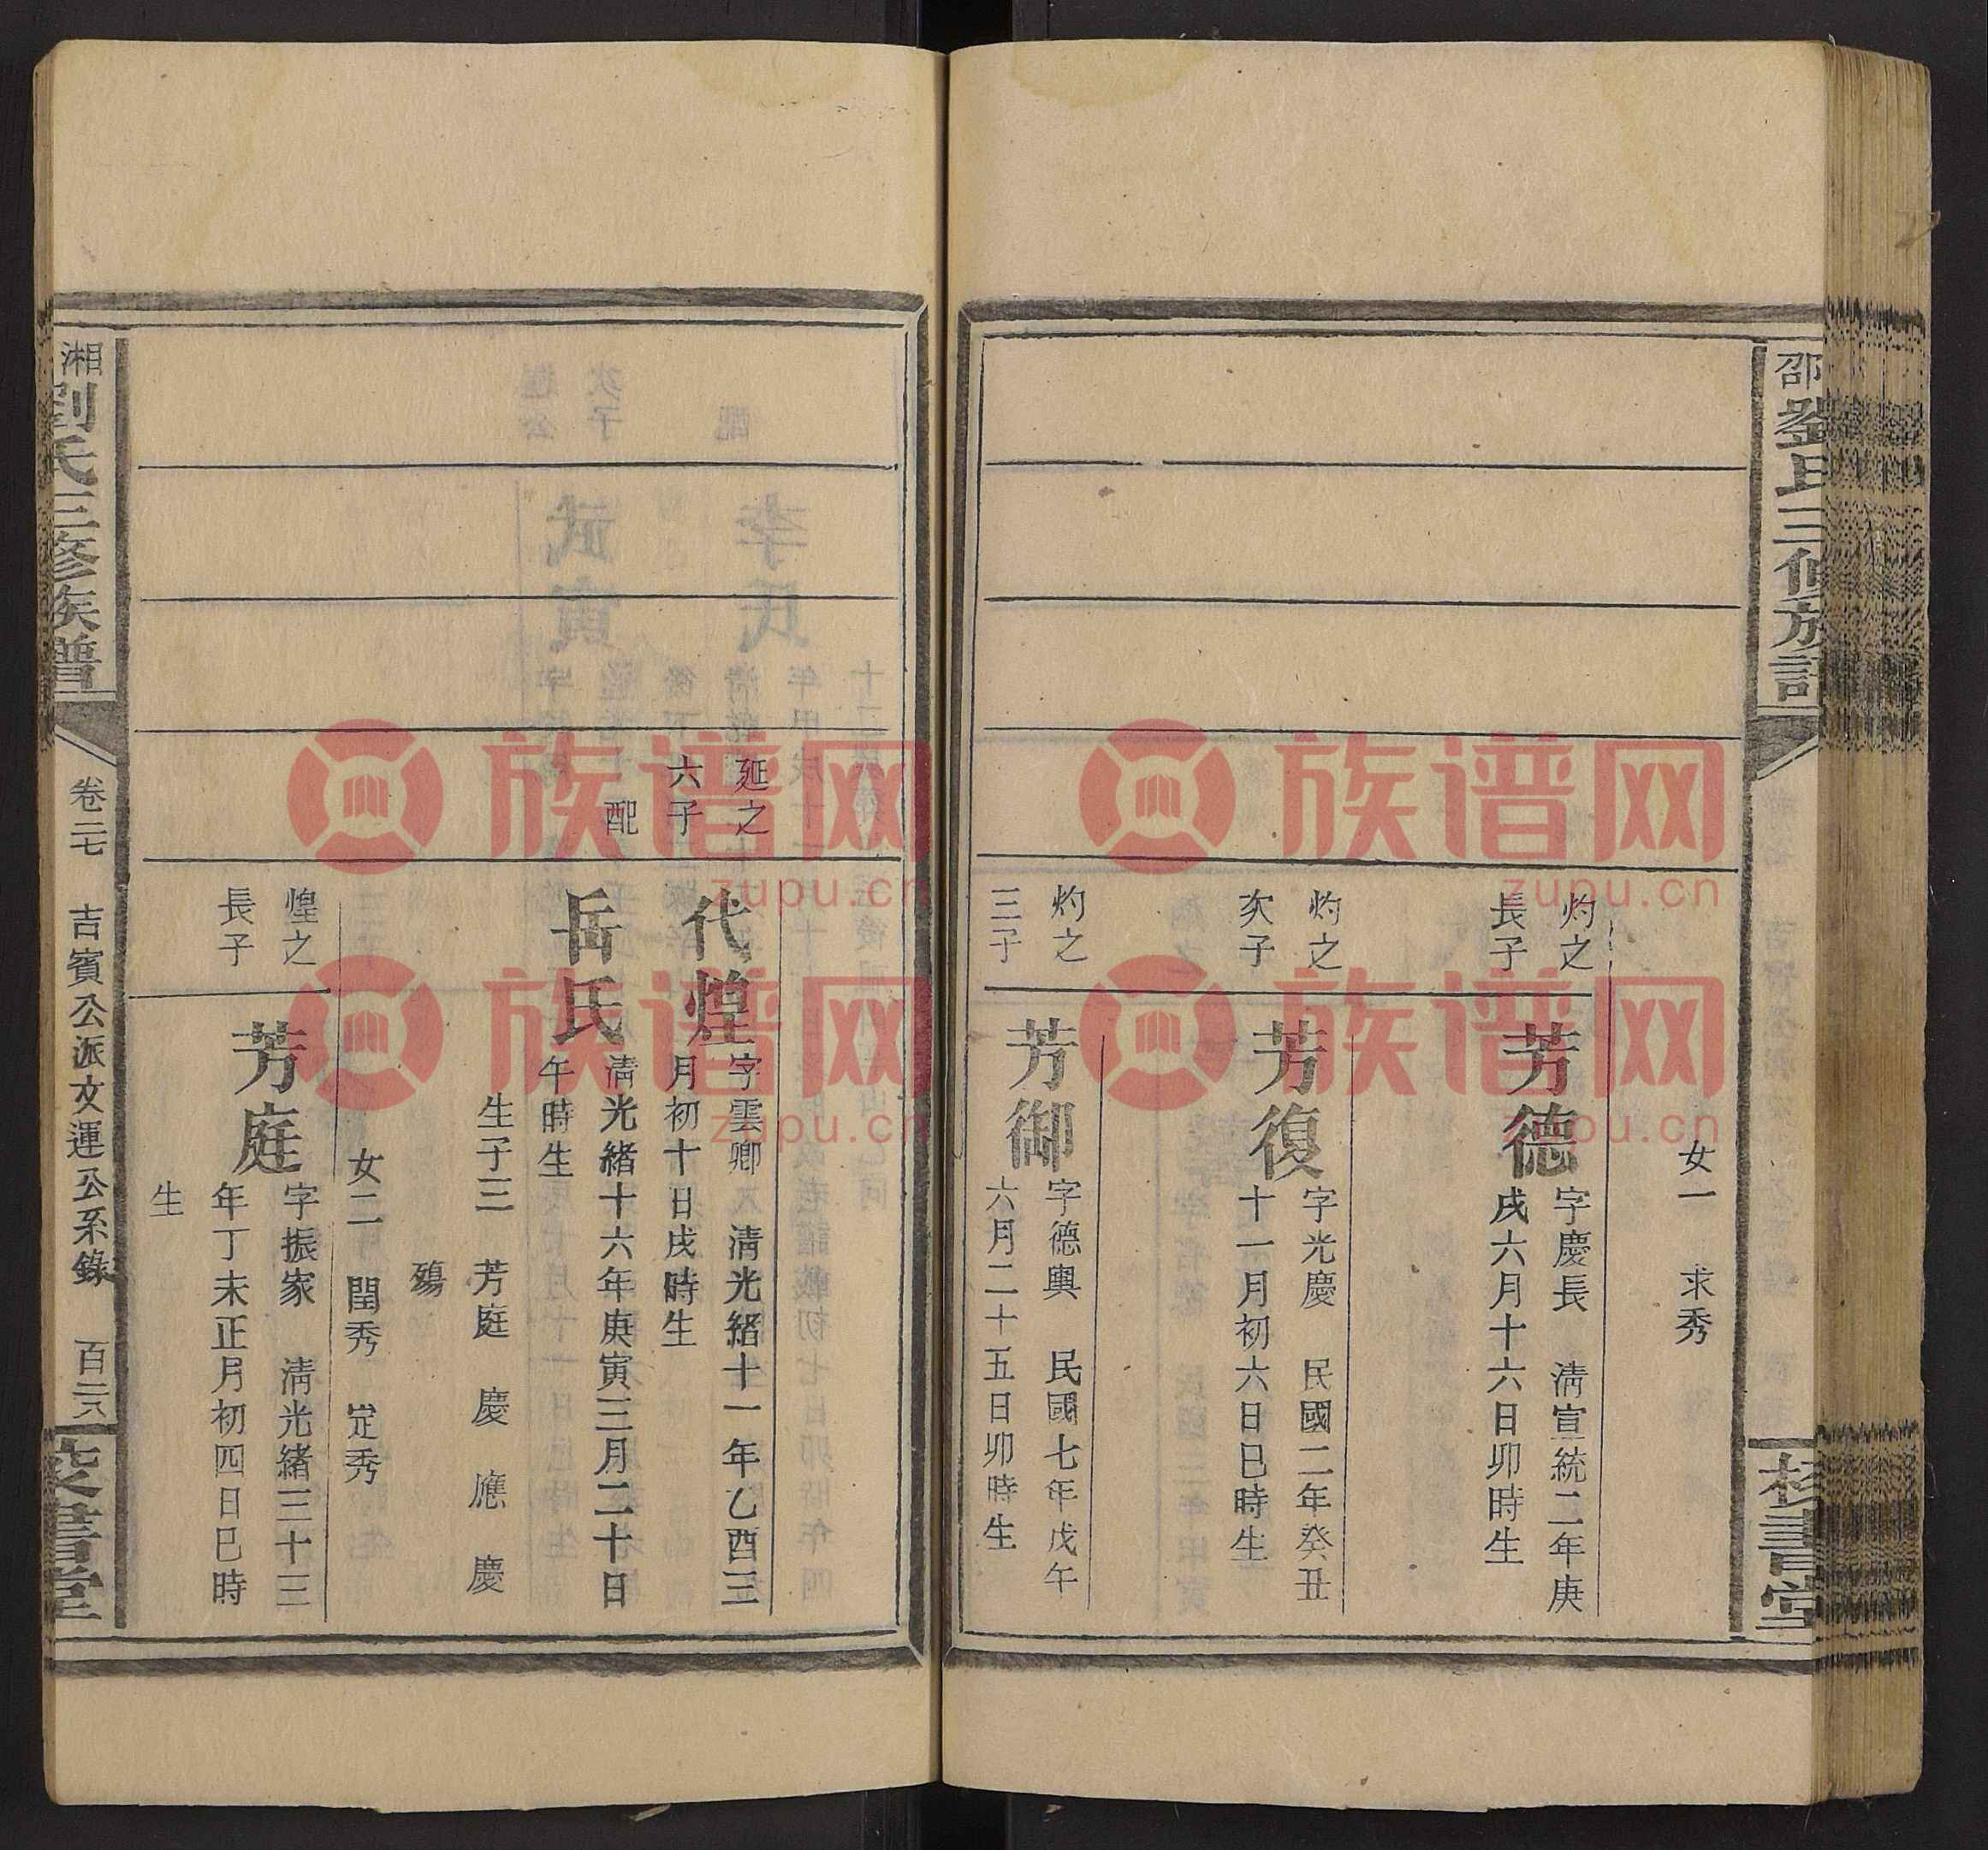 邵劉氏三修族譜
校書堂
女一　求秀
灼之
長子
芳德
字慶長　清宣統二年庚
戌六月十六日卯時生
灼之
次子
芳復
字光慶　民國二年癸丑
十一月初六日巳時生
灼之
三子
芳御
字德輿　民國七年戊午
六月二十五日卯時生
延之
六子
代煌
字雲卿　清光緒十一年乙酉三
月初十日戌時生
配
岳氏
清光緒十六年庚寅三月二十日
午時生
生子三　芳庭　慶　應　慶
殤
女二　閏秀　定秀
煌之
長子
芳庭
字振家　清光緒三十三
年丁未正月初四日巳時
生
湘劉氏三修族譜
卷二七　吉賓公派文運公系錄　百二八
校書堂
族谱网
zupu.cn
族谱网
zupu.cn
族谱网
zupu.cn
族谱网
zupu.cn